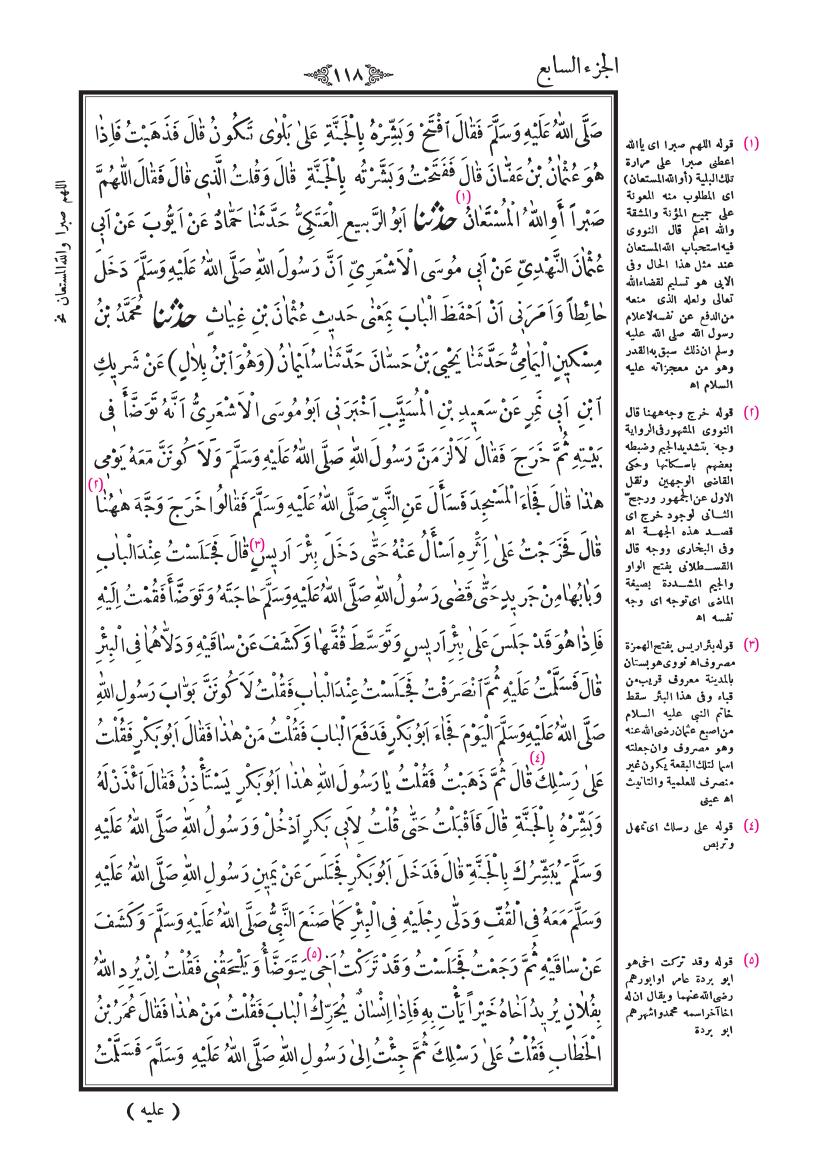 الجزء السابع
١١٨
صَلَّى اللهُ عَلَيْهِ وَسَلَّمَ فَقَالَ اَفْتَحْ وَبَشِّرْهُ بِالْجَنَّةِ عَلىٰ بَلْوٰى تَكُونُ قَالَ فَذَهَبْتُ فَاِذَا
هُوَ عُثْمَانُ بْنُ عَفَّانَ قَالَ فَفَتَحْتُ وَبَشَّرْتُه بِالْجَنَّةِ قَالَ وَقُلْتُ الَّذِى قَالَ فَقَالَ اللّٰهُمَّ
صَبْراً أَوِاللهُ الْمُسْتَعَانُ (١) حدّثنا اَبُو الرَّبِيعِ الْعَتَكِىُّ حَدَّثَنَا حَمَّادٌ عَنْ اَيُّوبَ عَنْ اَبِى
عُثْمَانَ النَّهْدِىِّ عَنْ اَبِى مُوسَى الْاَشْعَرِىِّ اَنَّ رَسُولَ اللهِ صَلَّى اللهُ عَلَيْهِ وَسَلَّمَ دَخَلَ
حَائِطاً وَاَمَرَنِى اَنْ اَحْفَظَ الْبَابَ بِمَعْنٰى حَدِيثِ عُثْمَانَ بْنِ غِيَاثٍ حدّثنا مُحَمَّدُ بْنُ
مِسْكِينٍ الْيَمَامِىُّ حَدَّثَنَا يَحْيَى بْنُ حَسَّانَ حَدَّثَنَا سُلَيْمَانُ (وَهُوَ ابْنُ بِلَالٍ) عَنْ شَرِيكِ
ابْنِ اَبِى نَمِرٍ عَنْ سَعِيدِ بْنِ الْمُسَيَّبِ اَخْبَرَنِى اَبُو مُوسَى الْاَشْعَرِىُّ اَنَّهُ تَوَضَّأَ فِى
بَيْتِهِ ثُمَّ خَرَجَ فَقَالَ لَاَلْزَمَنَّ رَسُولَ اللهِ صَلَّى اللهُ عَلَيْهِ وَسَلَّمَ وَلَاَكُونَنَّ مَعَهُ يَوْمِى
هٰذَا قَالَ فَجَاءَ الْمَسْجِدَ فَسَأَلَ عَنِ النَّبِىِّ صَلَّى اللهُ عَلَيْهِ وَسَلَّمَ فَقَالُوا خَرَجَ وَجَّهَ هٰهُنَا (٢)
قَالَ فَخَرَجْتُ عَلىٰ اَثَرِهِ اَسْأَلُ عَنْهُ حَتّٰى دَخَلَ بِئْرَ اَرِيسٍ (٣) قَالَ فَجَلَسْتُ عِنْدَ الْبَابِ
وَبَابُهَا مِنْ جَرِيدٍ حَتّٰى قَضٰى رَسُولُ اللهِ صَلَّى اللهُ عَلَيْهِ وَسَلَّمَ حَاجَتَهُ وَتَوَضَّأَ فَقُمْتُ اِلَيْهِ
فَاِذَا هُوَ قَدْ جَلَسَ عَلىٰ بِئْرِ اَرِيسٍ وَتَوَسَّطَ قُفَّهَا وَكَشَفَ عَنْ سَاقَيْهِ وَدَلَّاهُمَا فِى الْبِئْرِ
قَالَ فَسَلَّمْتُ عَلَيْهِ ثُمَّ انْصَرَفْتُ فَجَلَسْتُ عِنْدَ الْبَابِ فَقُلْتُ لَاَكُونَنَّ بَوَّابَ رَسُولِ اللهِ
صَلَّى اللهُ عَلَيْهِ وَسَلَّمَ الْيَوْمَ فَجَاءَ اَبُو بَكْرٍ فَدَفَعَ الْبَابَ فَقُلْتُ مَنْ هٰذَا فَقَالَ اَبُو بَكْرٍ فَقُلْتُ
عَلىٰ رِسْلِكَ (٤) قَالَ ثُمَّ ذَهَبْتُ فَقُلْتُ يَا رَسُولَ اللهِ هٰذَا اَبُو بَكْرٍ يَسْتَأْذِنُ فَقَالَ ائْذَنْ لَهُ
وَبَشِّرْهُ بِالْجَنَّةِ قَالَ فَاَقْبَلْتُ حَتّٰى قُلْتُ لِاَبِى بَكْرٍ ادْخُلْ وَرَسُولُ اللهِ صَلَّى اللهُ عَلَيْهِ
وَسَلَّمَ يُبَشِّرُكَ بِالْجَنَّةِ قَالَ فَدَخَلَ اَبُو بَكْرٍ فَجَلَسَ عَنْ يَمِينِ رَسُولِ اللهِ صَلَّى اللهُ عَلَيْهِ
وَسَلَّمَ مَعَهُ فِى الْقُفِّ وَدَلّٰى رِجْلَيْهِ فِى الْبِئْرِ كَمَا صَنَعَ النَّبِىُّ صَلَّى اللهُ عَلَيْهِ وَسَلَّمَ وَكَشَفَ
عَنْ سَاقَيْهِ ثُمَّ رَجَعْتُ فَجَلَسْتُ وَقَدْ تَرَكْتُ اَخِى (٥) يَتَوَضَّأُ وَيَلْحَقُنِى فَقُلْتُ اِنْ يُرِدِ اللهُ
بِفُلَانٍ يُرِيدُ اَخَاهُ خَيْراً يَأْتِ بِهِ فَاِذَا اِنْسَانٌ يُحَرِّكُ الْبَابَ فَقُلْتُ مَنْ هٰذَا فَقَالَ عُمَرُ بْنُ
الْخَطَّابِ فَقُلْتُ عَلىٰ رِسْلِكَ ثُمَّ جِئْتُ اِلىٰ رَسُولِ اللهِ صَلَّى اللهُ عَلَيْهِ وَسَلَّمَ فَسَلَّمْتُ
(عليه)
(١) قوله اللهم صبرا اى ياالله
اعطنى صبرا على مرارة
تلك البلية (أوالله المستعان)
اى المطلوب منه المعونة
على جميع المؤنة والمشقة
والله اعلم قال النووى
فيه استحباب الله المستعان
عند مثل هذا الحال وفى
الابى هو تسليم لقضاء الله
تعالى ولعله الذى منعه
من الدفع عن نفسه لاعلام
رسول الله صلى الله عليه
وسلم ان ذلك سبق به القدر
وهو من معجزاته عليه
السلام اه
(٢) قوله خرج وجه ههنا قال
النووى المشهور فى الرواية
وجه بتشديد الجيم وضبطه
بعضهم باسكانها وحكى
القاضى الوجهين ونقل
الاول عن الجمهور ورجح
الثانى لوجود خرج اى
قصد هذه الجهة اه
وفى البخارى ووجه قال
القسطلانى بفتح الواو
والجيم المشددة بصيغة
الماضى اى توجه اى وجه
نفسه اه
(٣) قوله بئر اريس بفتح الهمزة
مصروف اه نووى هو بستان
بالمدينة معروف قريب من
قباء وفى هذا البئر سقط
خاتم النبى عليه السلام
من اصبع عثمان رضى الله عنه
وهو مصروف وان جعلته
اسما لتلك البقعة يكون غير
منصرف للعلمية والتانيث
اه عينى
(٤) قوله على رسلك اى تمهل
وتربص
(٥) قوله وقد تركت اخى هو
ابو بردة عامر اوابورهم
رضى الله عنهما ويقال ان له
اخا آخر اسمه محمد واشهرهم
ابو بردة
اللهم صبرا والله المستعان نخ